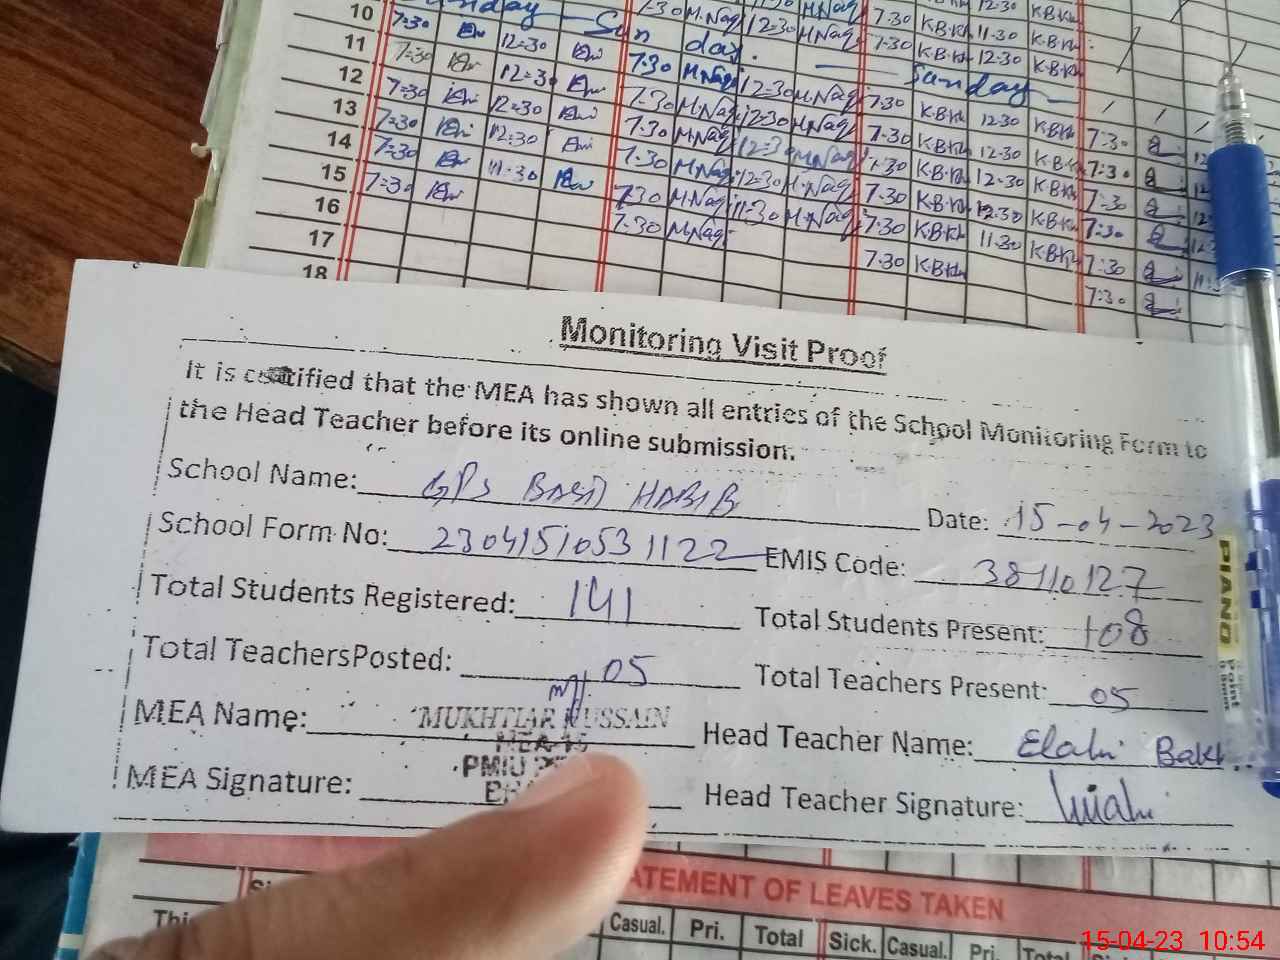 10 7:30 12:30 7:30 M.Naq 12:30 M.Naq 7.30 K.B.Kh 12.30 K.B.Kh
Sunday Sunday Sunday
11 7:30 12:30 7:30 M.Naq 12:30 M.Naq 7.30 K.B.Kh 11.30 K.B.Kh
12 7:30 12:30 7:30 M.Naq 12:30 M.Naq 7.30 K.B.Kh 12.30 K.B.Kh
13 7:30 12:30 7:30 M.Naq 12:30 M.Naq 7.30 K.B.Kh 12.30 K.B.Kh 7:30
14 7:30 12:30 7:30 M.Naq 12:30 M.Naq 7.30 K.B.Kh 12.30 K.B.Kh 7:30
15 7:30 11:30 7:30 M.Naq 11:30 M.Naq 7.30 K.B.Kh 11.30 K.B.Kh 7:30
16 7:30 7:30 M.Naq 7.30 K.B.Kh 7:30
17
18
Monitoring Visit Proof
It is certified that the MEA has shown all entries of the School Monitoring Form to
the Head Teacher before its online submission.
School Name: GPS BASTI HABIB Date: 15-04-2023
School Form No: 2304151053 1122 EMIS Code: 38110127
Total Students Registered: 141 Total Students Present: 108
Total Teachers Posted: 05 Total Teachers Present: 05
MEA Name: MUKHTIAR HUSSAIN Head Teacher Name: Elahi Bakh
MEA
PMIU
MEA Signature: Head Teacher Signature:
PIANO
Point
ATEMENT OF LEAVES TAKEN
Casual. Pri. Total Sick. Casual. Pri. Total
15-04-23 10:54